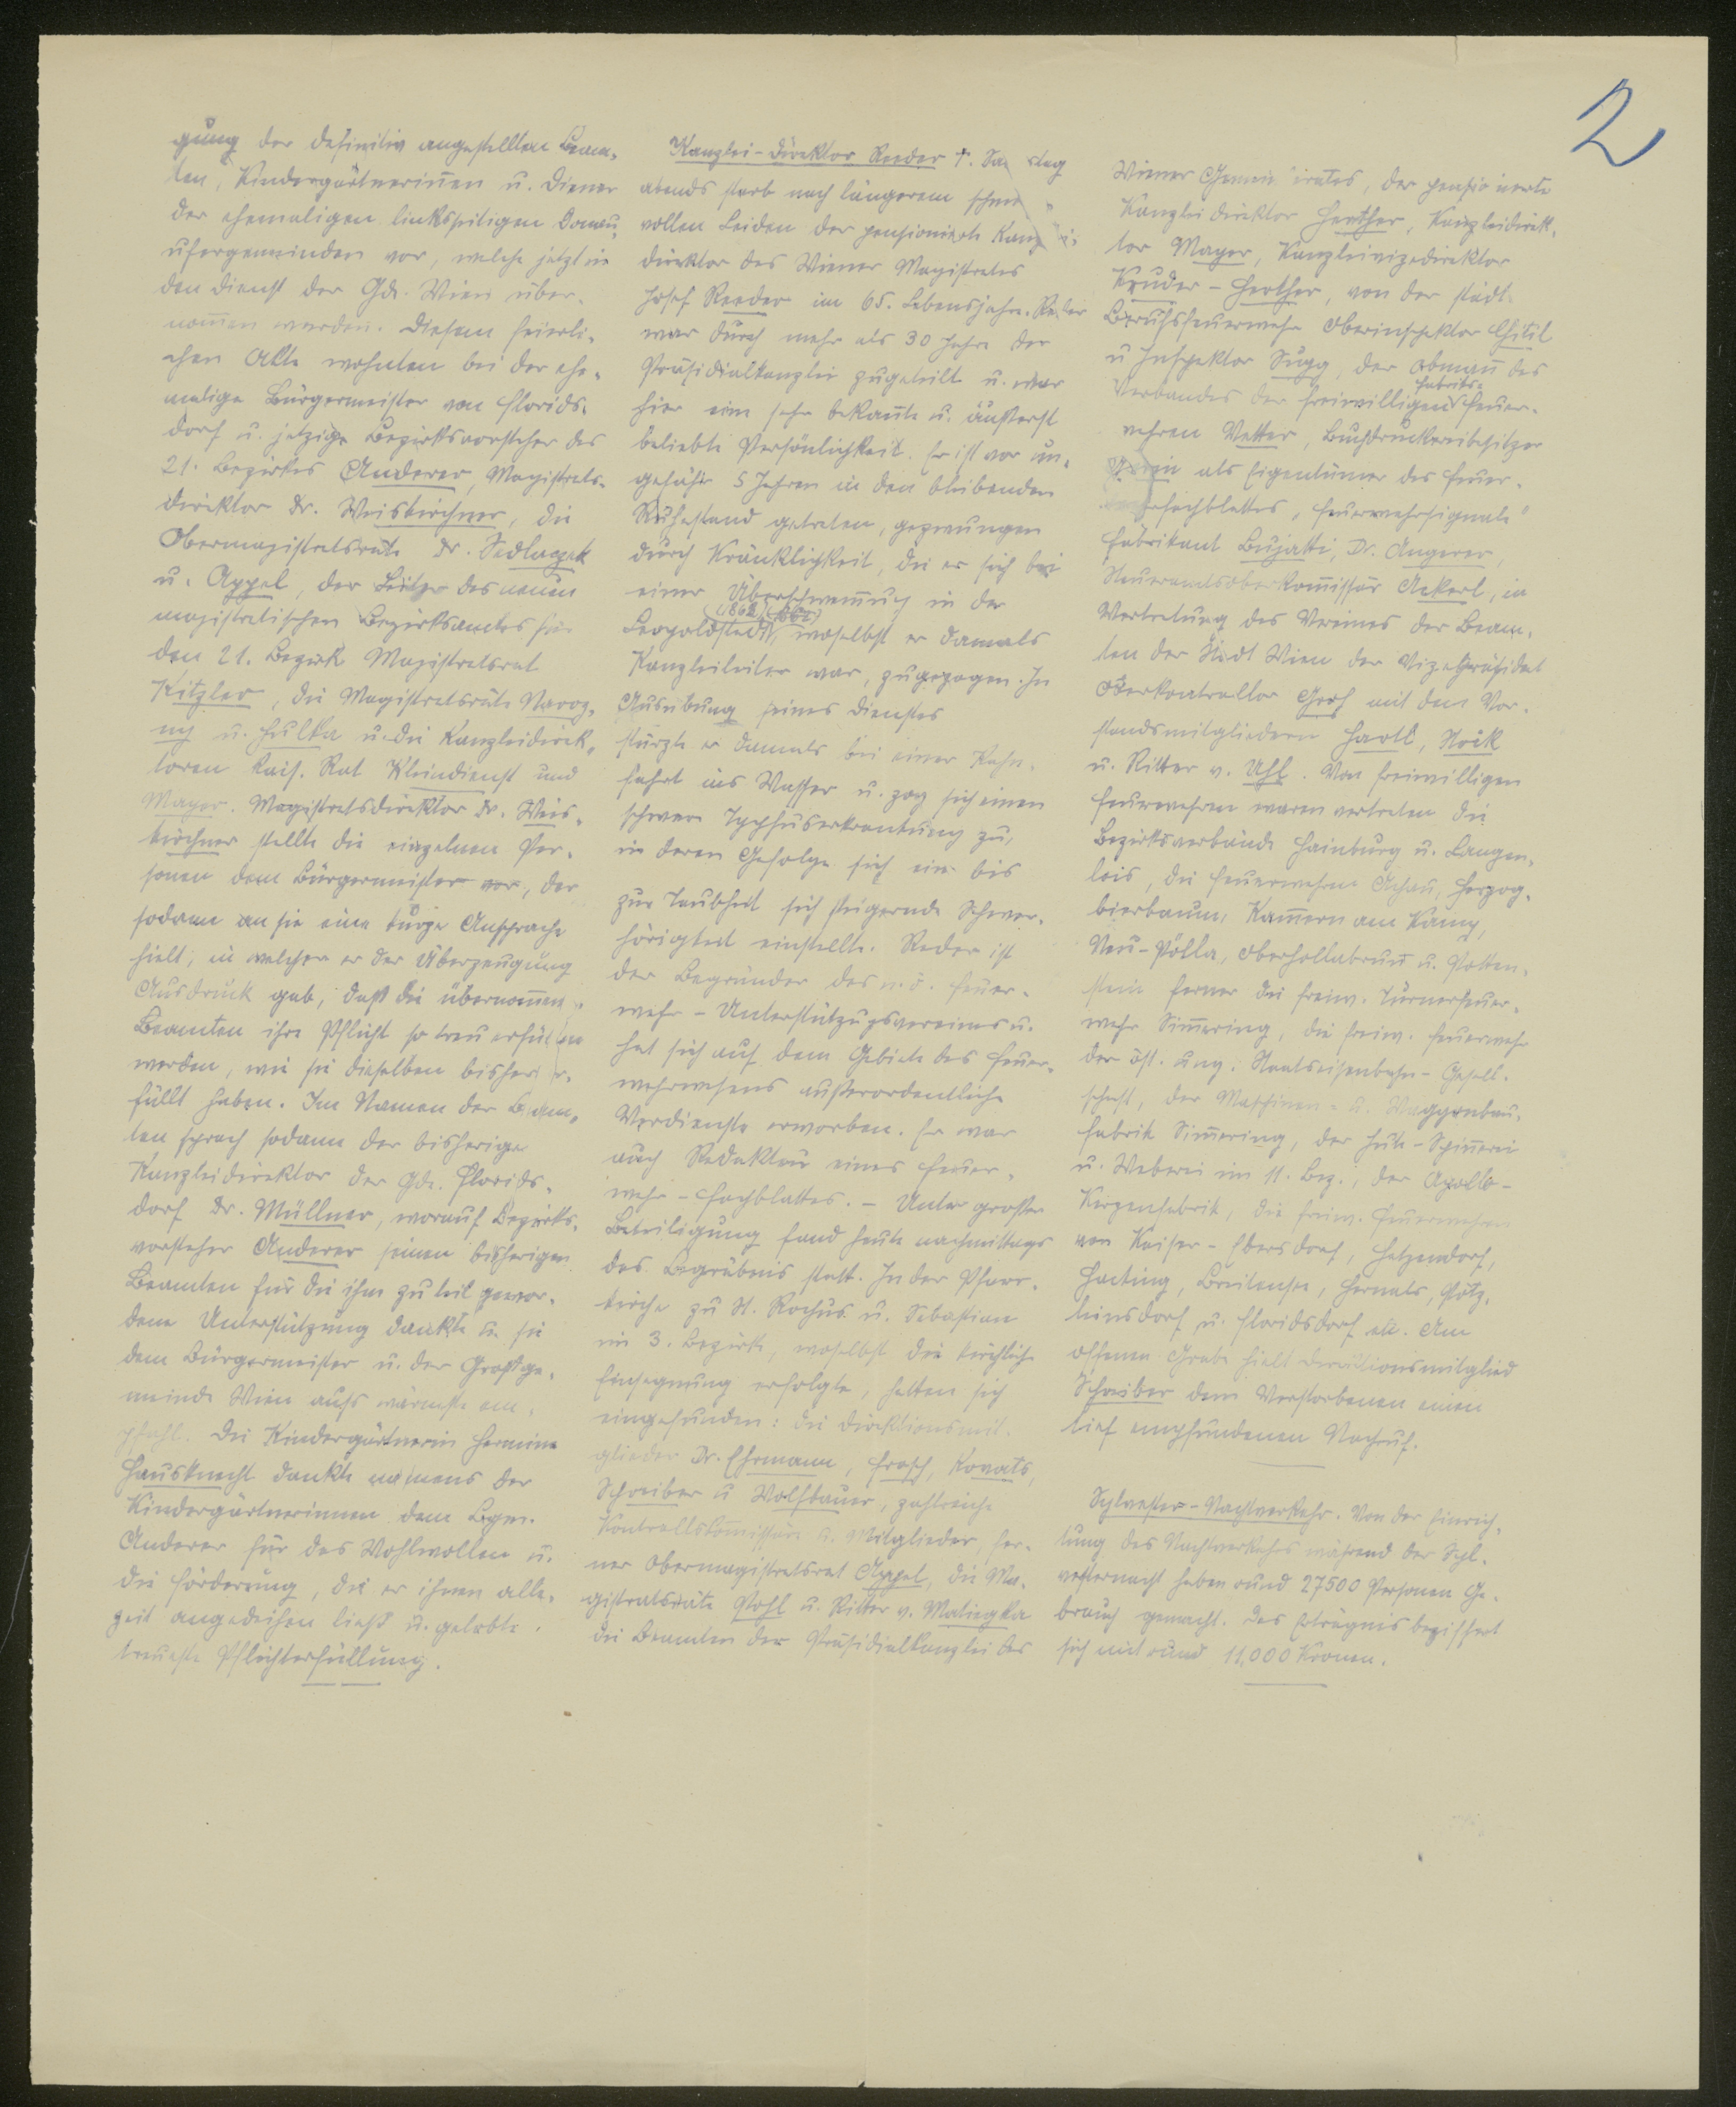 2
gung der definitiv angestellten Beam-
ten, Kindergärtnerinnen u. Diener
der ehemaligen linksseitigen Donau-
ufergemeinden vor, welche jetzt in
den Dienst der Gde. Wien über-
nommen wurden. Diesem feierli-
chen Akte wohnten bei der ehe-
malige Bürgermeister von Florids-
dorf u. jetzige Bezirksvorsteher des
21. Bezirkes Anderer, Magistrats-
direktor Dr. Weiskirchner, die
Obermagistratsräte Dr. Sedlaczek
u. Appel, der Leiter des neuen
magistratischen Bezirksamtes für
den 21. Bezirk Magistratsrat
Kitzler, die Magistratsräte Nawoz-
ny u. Hulka u. die Kanzleidirek-
toren kais. Rat Kleindienst und
Mayer. Magistratsdirektor Dr. Weis-
kirchner stellte die einzelnen Per-
sonen dem Bürgermeister vor, der
sodann an sie eine kurze Ansprache
hielt, in welcher er der Überzeugung
Ausdruck gab, daß die übernommen
Beamten ihre Pflicht so treu erfüllen
werden, wie sie dieselben bisher er-
füllt haben. Im Namen der Beam-
ten sprach sodann der bisherige
Kanzleidirektor der Gde. Florids-
dorf Dr. Müllner, worauf Bezirks-
vorsteher Anderer seinen bisherigen
Beamten für die ihm zuteil gewor-
dene Unterstützung dankte u. sie
dem Bürgermeister u. der Großge-
meinde Wien aufs wärmste em-
pfahl. Die Kindergärtnerin Hermine
Hausknecht dankte namens der
Kindergärtnerinnen dem Bgm.
Anderer für das Wohlwollen u.
die Förderung, die er ihnen alle-
zeit angedeihen ließ u. gelobte
treueste Pflichterfüllung.
Kanzlei-Direktor Reeder †. Samstag
abends starb nach längerem schmerz-
vollen Leiden der pensionierte Kanzlei-
direktor des Wiener Magistrates
Josef Reeder im 65. Lebensjahre. Reder
war durch mehr als 30 Jahre der
Präsidialkanzlei zugeteilt u. war
hier eine sehr bekannte u. äußerst
beliebte Persönlichkeit. Er ist vor un-
gefähr 5 Jahren in den bleibenden
Ruhestand getreten, gezwungen
durch Kränklichkeit, die er sich bei
einer Überschwemmung in der
Leopoldstadt (1862), woselbst er damals
Kanzleileiter war, zugezogen. In
Ausübung seines Dienstes
stürzte er damals bei einer Kahn-
fahrt ins Wasser u. zog sich einen
schwere Typhuserkrankung zu,
in deren Gefolge sich eine bis
zur Taubheit sich steigernde Schwer-
hörigkeit einstellte. Reder ist
der Begründer des n.ö. Feuer-
wehr-Unterstützungsvereines u.
hat sich auf dem Gebiete des Feuer-
wehrwesens außerordentliche
Verdienste erworben. Er war
auch Redakteur eines Feuer-
wehr-Fachblattes. – Unter großer
Beteiligung fand heute nachmittags
das Begräbnis statt. In der Pfarr-
kirche zu St. Rochus u. Sebastian
im 3. Bezirke, woselbst die kirchliche
Einsegnung erfolgte, hatten sich
eingefunden: die Direktionsmit-
glieder Dr. Ehrmann, Frosch, Kovats,
Schreiber u. Wolfbauer, zahlreiche
Kontrollskommissäre u. Mitglieder, fer-
ner Obermagistratsrat Appel, die Ma-
gistratsräte Pohl u. Ritter v. Matiegka
die Beamten der Präsidialkanzlei des
Wiener Gemeinderates, der pensionierte
Kanzleidirektor Herther, Kanzleidirek-
tor Mayer, Kanzleivizedirektor
Kruder-Herther, von der städt.
Berufsfeuerwehr Oberinspektor Chitil
u Inspektor Sugg, der Obmann des
Verbandes der freiwilligen Fabriks-Feuer-
wehren Vetter, Buchdruckereibesitzer
als Eigentümer des Feuer-
fachblattes „Feuerwehrsignale"
Fabrikant Bujatti, Dr. Angerer,
Steueramtsoberkommissär Ackerl, in
Vertretung des Vereines der Beam-
ten der Stadt Wien der Vizepräsident
Oberkontrollor Groß mit den Vor-
standsmitgliedern Hartl, Stöck
u. Ritter v. Uhl. Von freiwilligen
Feuerwehren waren vertreten die
Bezirksverbände Hainburg u. Langen-
lois, die Feuerwehren Achau, Herzog-
bierbaum, Kammern am Kamp,
Neu-Pölla, Oberhollabrunn u. Potten-
stein ferner die freiw. Turnerfeuer-
wehr Simmering, die freiw. Feuerwehr
der öst. ung. Staatseisenbahn-Gesell-
schaft, der Maschinen- u. Waggonbau-
fabrik Simmering, der Jute-Spinnerei
u. Weberei im 11. Bez., der Apollo-
Kerzenfabrik, die freiw. Feuerwehren
von Kaiser-Ebersdorf, Hetzendorf,
Hacking, Breitensee, Hernals, Pötz-
leinsdorf u. Floridsdorf etc. Am
offenen Grabe hielt Direktionsmitglied
Schreiber dem Verstorbenen einen
tief empfundenen Nachruf.
Sylvester-Nachtverkehr. Von der Einrich-
tung des Nachtverkehrs während der Syl-
vesternacht haben rund 27500 Personen Ge-
brauch gemacht. Das Erträgnis beziffert
sich mit rund 11.000 Kronen.